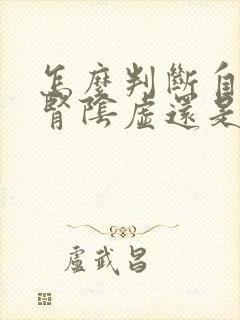 怎麼判斷自
腎陰虛還是
盧武昌